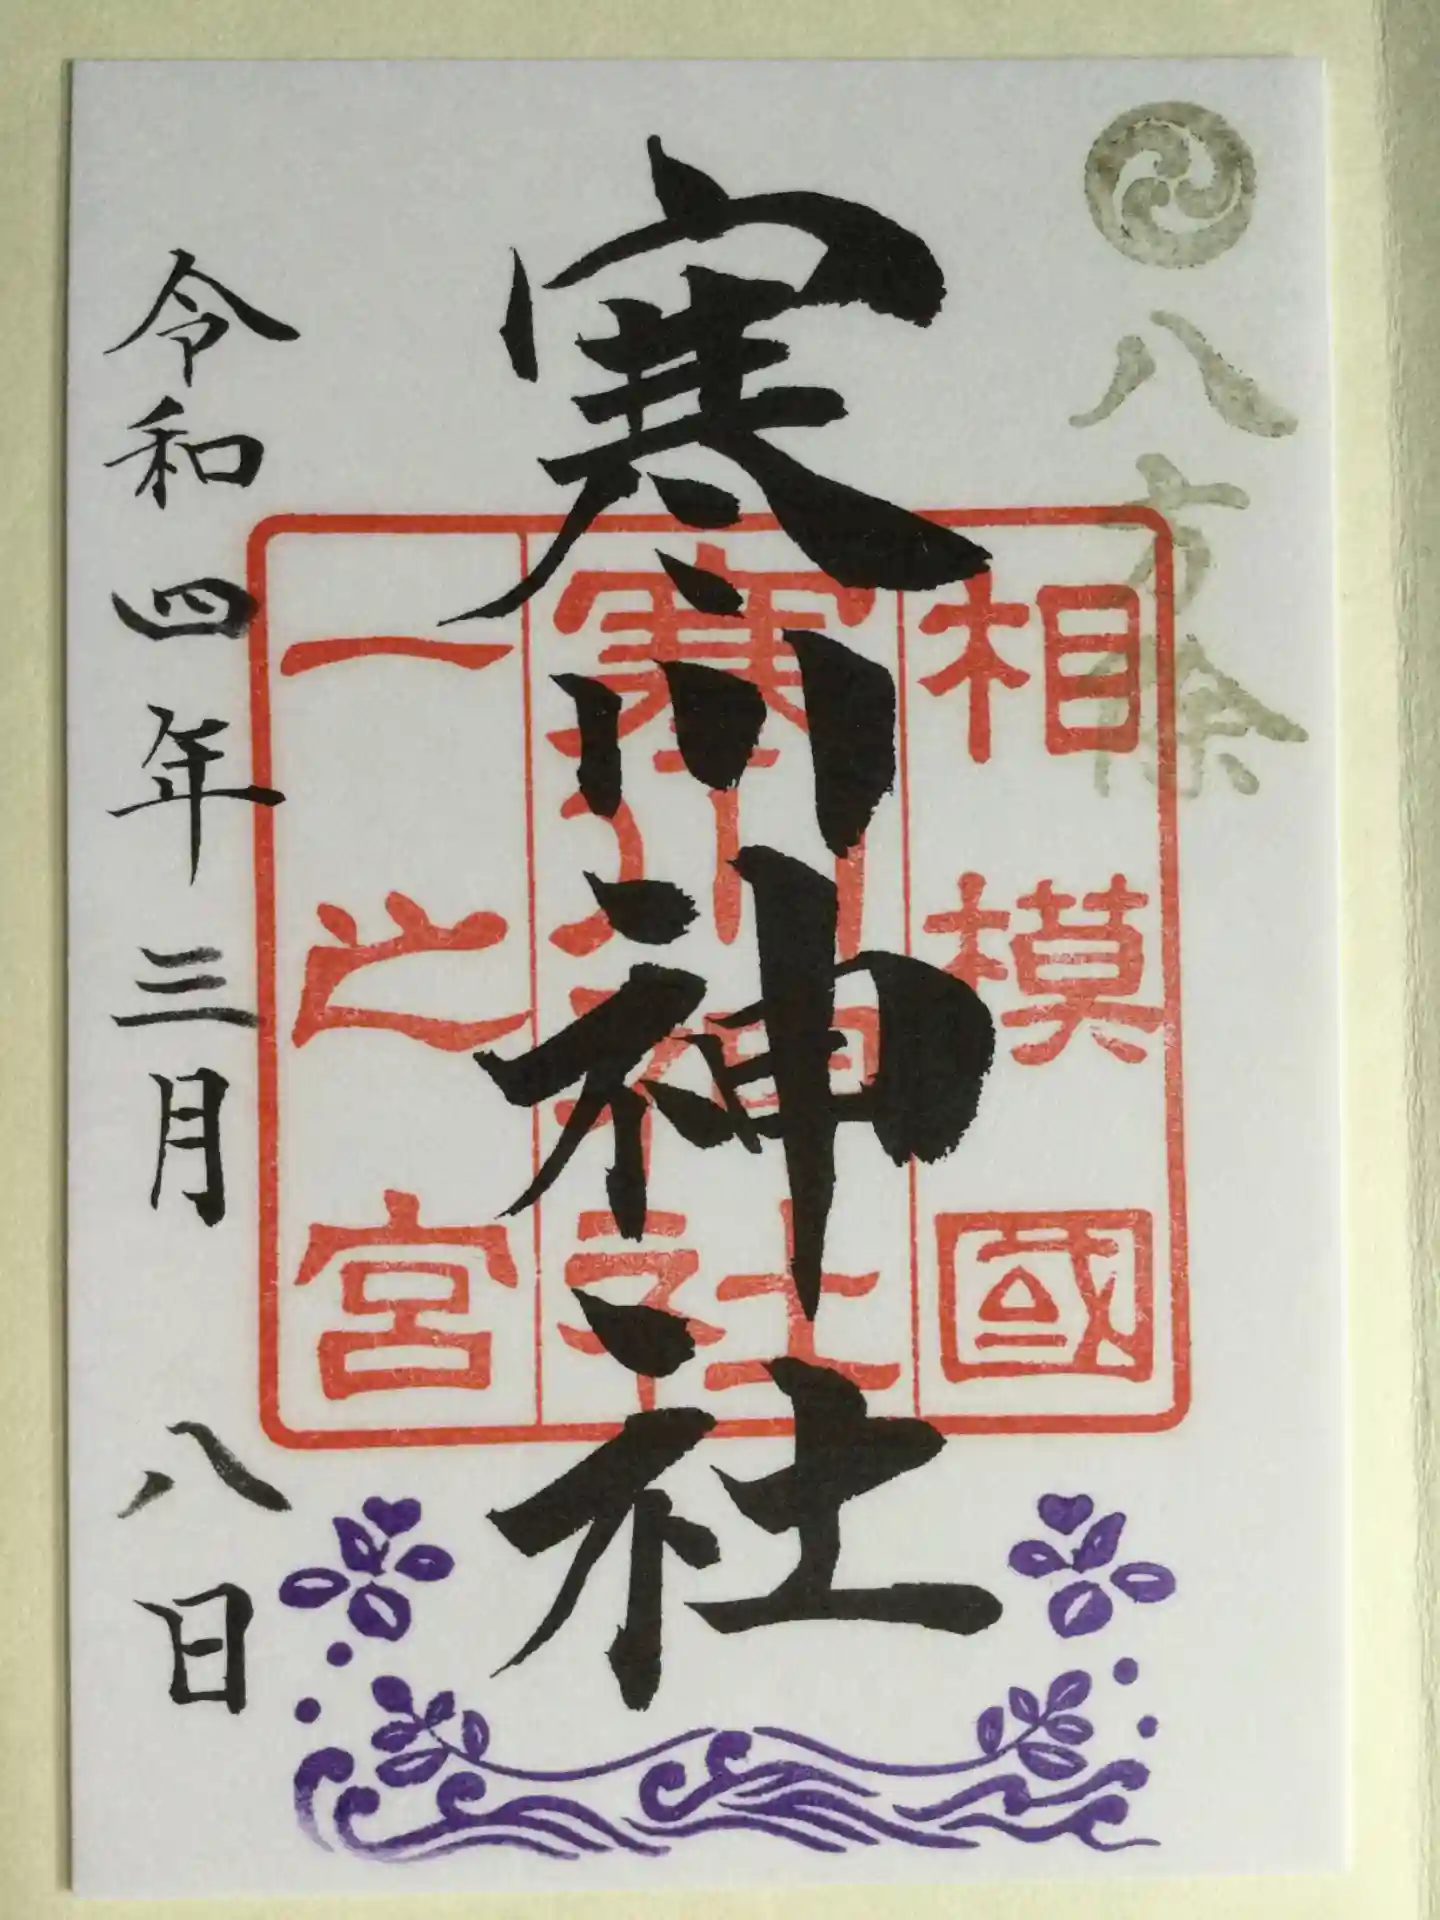 八方除
寒川神社
相模國
寒川神社
一之宮
令和四年三月八日